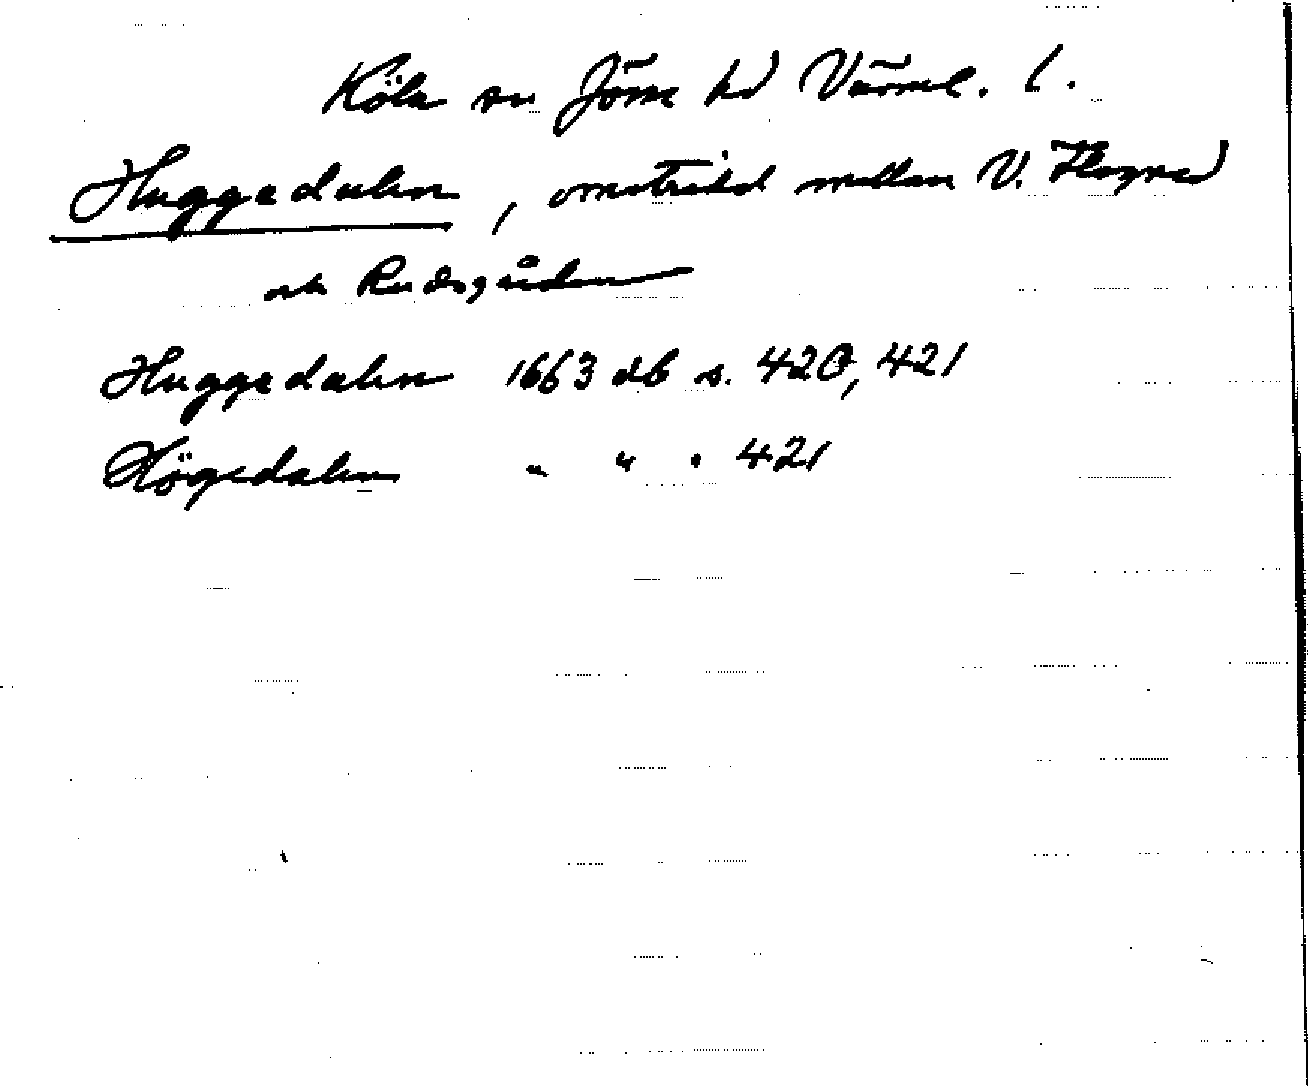 Köla sn Jösse hd Värml. l.
Huggedalen, omstridd mellan V. Flogned
och Rudsgården
Huggedalen 1663 db s. 420, 421
Högedalen " " " 421